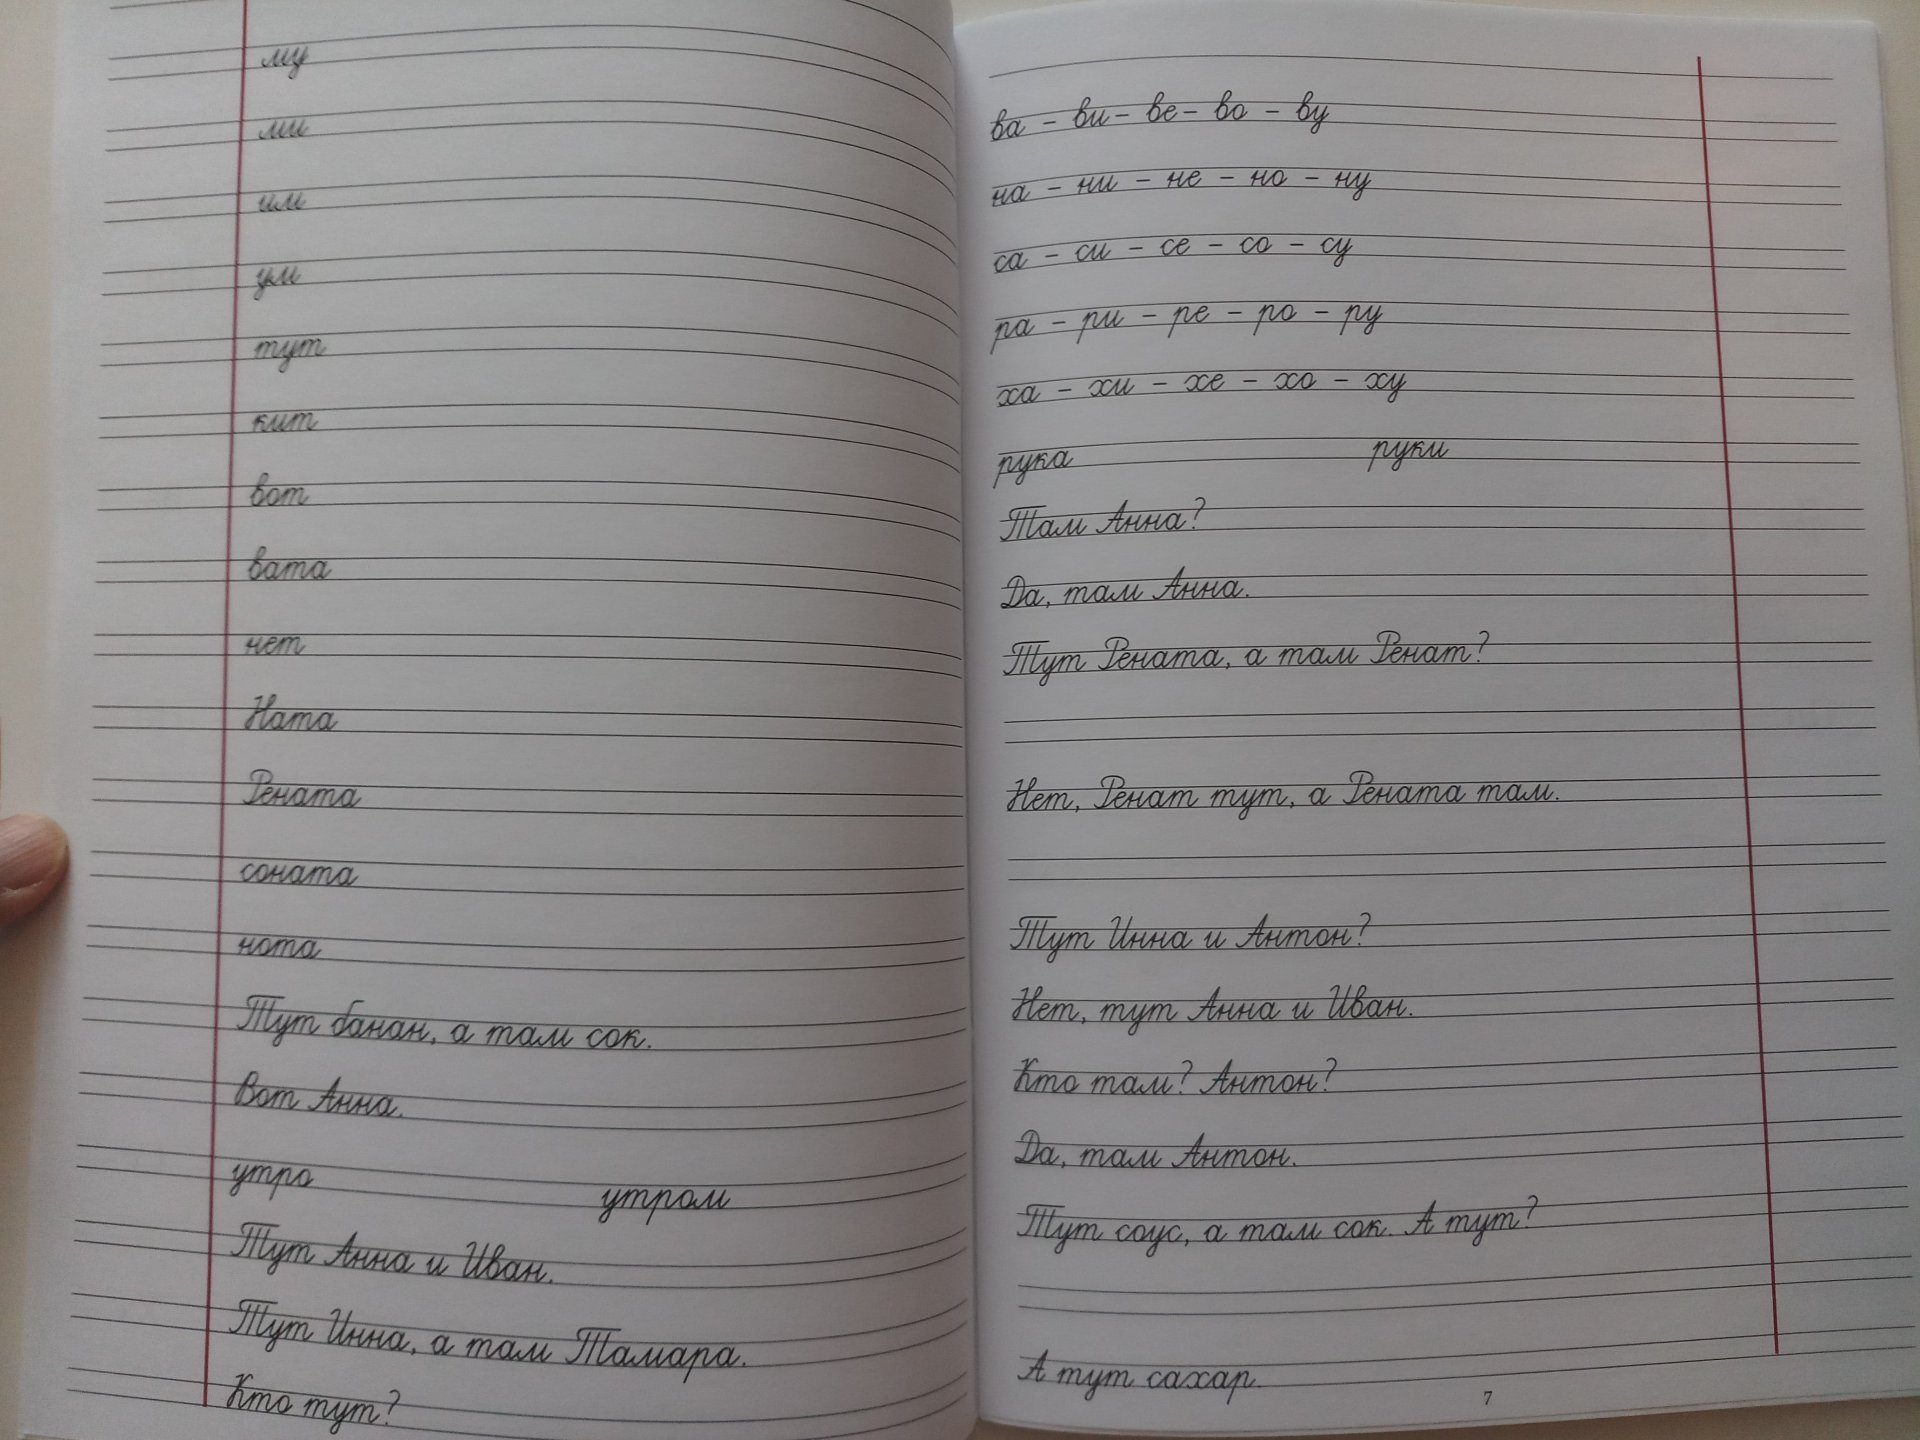 му
ми
им
ум
тут
кит
вот
вата
нет
Ната
Рената
соната
нота
Тут банан, а там сок.
Вот Анна.
утро утром
Тут Анна и Иван.
Тут Инна, а там Тамара.
Кто тут?
ва - ви - ве - во - ву
на - ни - не - но - ну
са - си - се - со - су
ра - ри - ре - ро - ру
ха - хи - хе - хо - ху
рука руки
Там Анна?
Да, там Анна.
Тут Рената, а там Ренат?
Нет, Ренат тут, а Рената там.
Тут Инна и Антон?
Нет, тут Анна и Иван.
Кто там? Антон?
Да, там Антон.
Тут соус, а там сок. А тут?
А тут сахар.
7